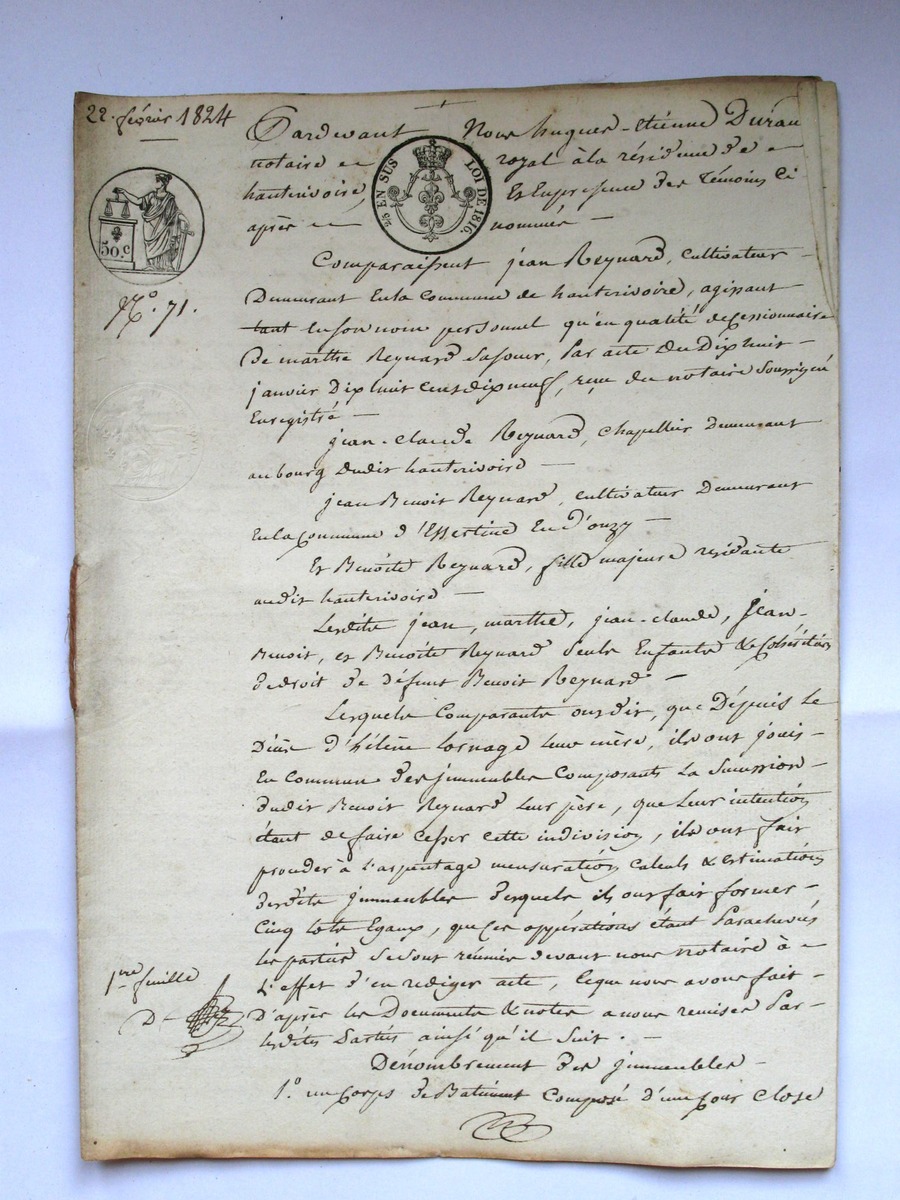 22. février 1824
Pardevant Nous hugues-etienne Duran
notaire royal à la résidence de
hautrivoire, Et En presence des témoins Ci
après nommés —
25 EN SUS LOI DE 1816.
50.C
N.° 71.
Comparaissent jean Reynard, Cultivateur
Demeurant En la Commune de hautrivoire, agissant
tant En son nom personnel qu'en qualité de Cessionnaire
De marthe Reynard Sa soeur, par acte du Dix huit
janvier Dix huit Cent dix neuf, reçu du notaire Soussigné
Enregistré —
jean-claude Reynard, Chapellier Demeurant
au bourg dudit hautrivoire —
jean Benoit Reynard, Cultivateur Demeurant
En la Commune d'Essertine En D'onzy —
Et Benoîte Reynard, fille majeure residante
audit hautrivoire —
Lesdits jean, marthe, jean-claude, jean-
Benoit, et Benoîte Reynard Seuls Enfants & Cohéritiers
de droit de défunt Benoit Reynard —
Lesquels Comparants ont dit, que Depuis le
Décès d'hélène leur mère, ils ont joui
En Commun des jmmeubles Composants La Succession
dudit Benoit Reynard Leur père, que Leur intention
étant de faire Cesser cette indivision, ils ont fait
procéder à L'arpentage mensuration Calculs & Estimation
desdits jmmeubles desquels ils ont fait former
Cinq Lots Egaux, que Ces opperations étant Parachevés
les parties Se sont réunies devant nous notaire à
L'effet d'en rediger acte, Ce que nous avons fait
D'après les Documents & notes a nous remises Par
lesdites Parties ainsi qu'il Suit. —
1re feuille
D
Dénombrement des jmmeubles —
1.° un Corps de Batiment Composé d'une Cour Close